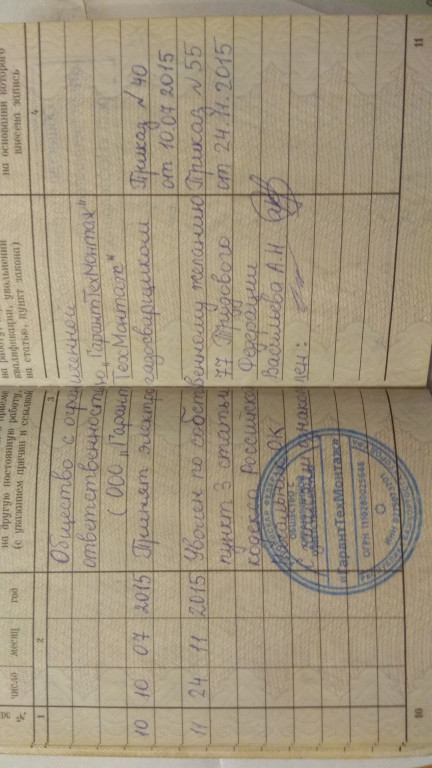 на другую постоянную работу, квалификации, увольнении
(с указанием причин и ссылкой на статью, пункт закона)
на основании которого
внесена запись
число месяц год
1 2 3 4
Общество с ограниченной
ответственностью „ГарантТехМонтаж"
(ООО „Гарант ТехМонтаж"
10 10 07 2015 Принят электрогазосварщиком Приказ №40
от 10.07 2015
11 24 11 2015 Уволен по собственному желанию Приказ №55
пункт 3 статьи 77 Трудового от 24.11.2015
кодекса Российской Федерации
ОК Васильева А.Н
С записями ознакомлен:
«ГарантТехМонтаж»
ОГРН
10
11